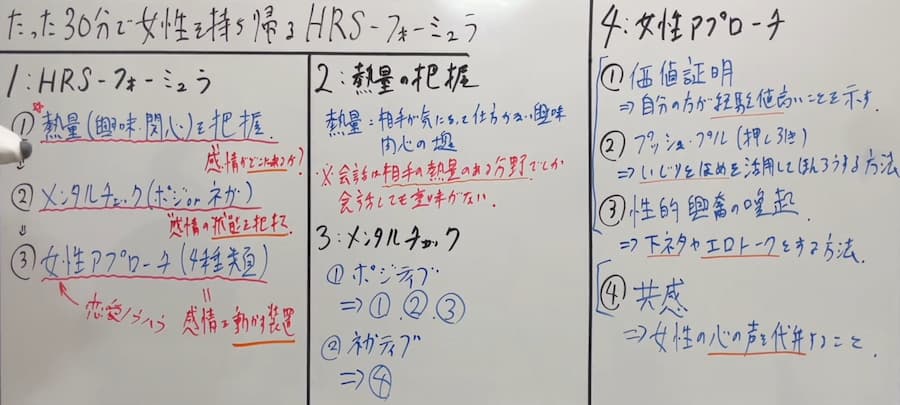 たった30分で女性を持ち帰るHRS-フォーミュラ
1:HRS-フォーミュラ
① 熱量(興味.関心)を把握.
感情がどこにあるか?
⇓
② メンタルチェック(ポジorネガ)
感情の状態を把握.
⇓
③ 女性アプローチ(4種類)
恋愛ノウハウ
=
感情を動かす装置
2:熱量の把握
熱量=相手が気になって仕方がない興味
関心の塊
※会話は相手の熱量のある分野でしか
会話しても意味がない.
3:メンタルチェック
① ポジティブ
⇒①.②.③
② ネガティブ
⇒④
4:女性アプローチ
① 価値証明
⇒自分の方が経験値高いことを示す.
② プッシュ・プル(押し引き)
⇒いじりとほめを活用してほんろうする方法
③ 性的興奮の喚起.
⇒下ネタやエロトークをする方法.
④ 共感
⇒女性の心の声を代弁すること.